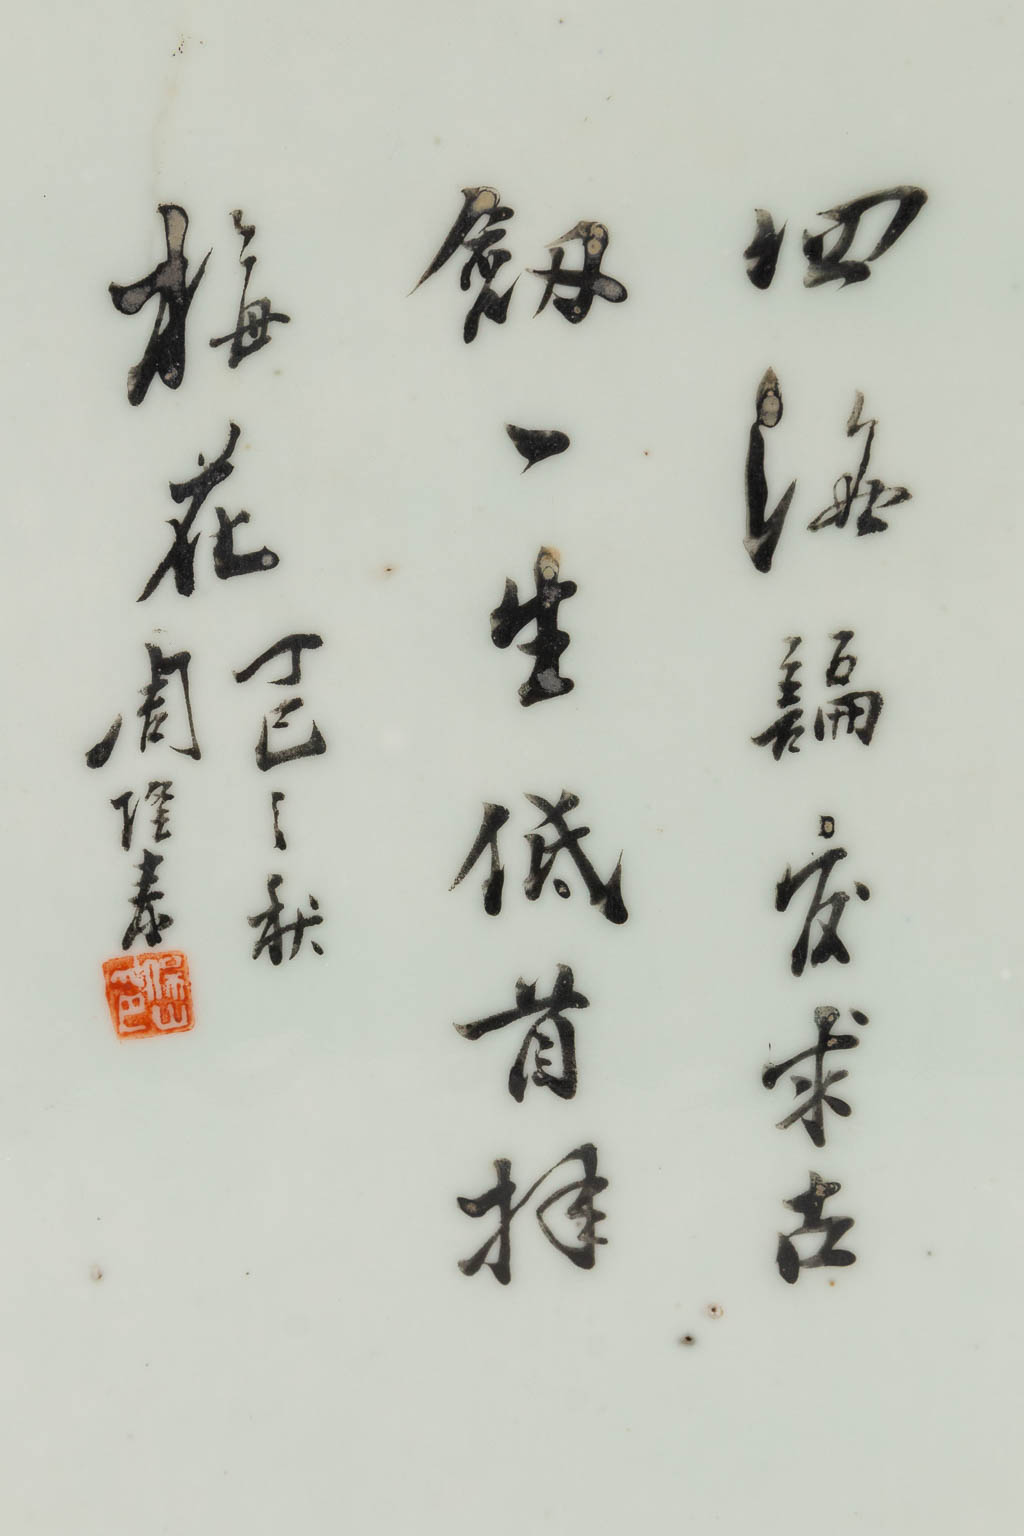 四海論交求古
劔一生低首拜
梅花
丁巳之秋
周隆泰